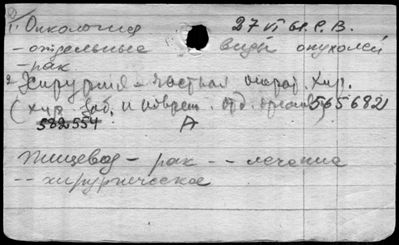 1. Онкология 27 VI 61. Р. В.
- отдельные виды опухолей
- рак
2. Хирургия - частная операт. хир.
(хир. заб. и поврежд. отд. органов) 5656821
582554 А
Пищевод - рак -- лечение
-- хирургическое